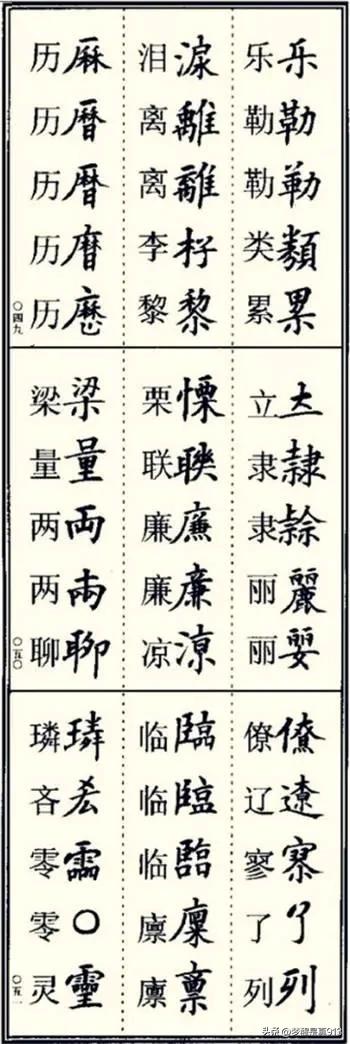 乐乐
勒勒
勒勒
类類
累累
泪淚
离離
离離
李杍
黎黎
历厤
历暦
历暦
历
历
〇四九
立
隶隷
隶
丽麗
丽
栗慄
联
廉廉
廉廉
凉涼
梁梁
量量
两両
两
聊聊
〇五〇
僚僚
辽遼
寥
了了
列列
临臨
临臨
临臨
廪
廪禀
璘璘
吝
零
零〇
灵靈
〇五一
头条 @乡